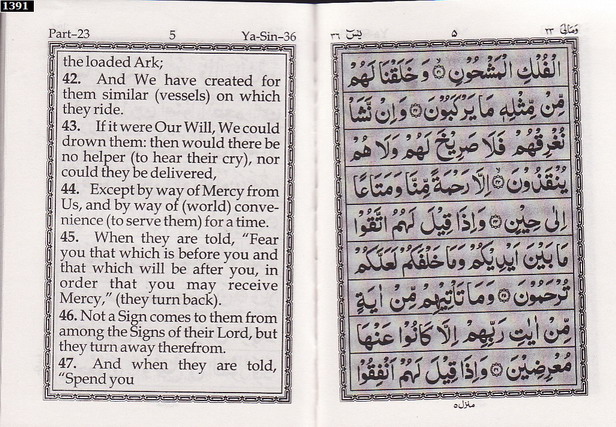 1391
Part–23 5 Ya-Sin–36
the loaded Ark;
42. And We have created for
them similar (vessels) on which
they ride.
43. If it were Our Will, We could
drown them: then would there be
no helper (to hear their cry), nor
could they be delivered,
44. Except by way of Mercy from
Us, and by way of (world) conve-
nience (to serve them) for a time.
45. When they are told, “Fear
you that which is before you and
that which will be after you, in
order that you may receive
Mercy,” (they turn back).
46. Not a Sign comes to them from
among the Signs of their Lord, but
they turn away therefrom.
47. And when they are told,
“Spend you
يٰسٓ ٣٦ ۵ وَمَالِیَ ٢٣
الْفُلْكِ الْمَشْحُوْنِ ۝٤١ وَخَلَقْنَا لَهُمْ
مِّنْ مِّثْلِهٖ مَا يَرْكَبُوْنَ ۝٤٢ وَاِنْ نَّشَاْ
نُغْرِقْهُمْ فَلَا صَرِيْخَ لَهُمْ وَلَا هُمْ
يُنْقَذُوْنَ ۝٤٣ اِلَّا رَحْمَةً مِّنَّا وَمَتَاعًا
اِلٰى حِيْنٍ ۝٤٤ وَاِذَا قِيْلَ لَهُمُ اتَّقُوْا
مَا بَيْنَ اَيْدِيْكُمْ وَمَا خَلْفَكُمْ لَعَلَّكُمْ
تُرْحَمُوْنَ ۝٤٥ وَمَا تَاْتِيْهِمْ مِّنْ اٰيَةٍ
مِّنْ اٰيٰتِ رَبِّهِمْ اِلَّا كَانُوْا عَنْهَا
مُعْرِضِيْنَ ۝٤٦ وَاِذَا قِيْلَ لَهُمْ اَنْفِقُوْا
منزل ۵